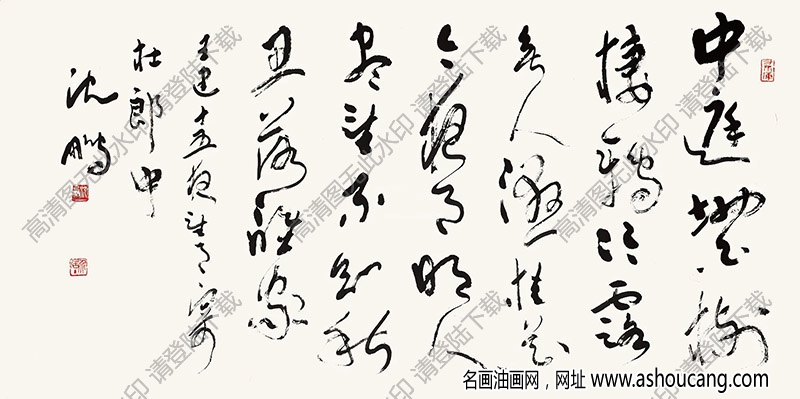 中庭地白樹
棲鴉冷露
無聲濕桂花
今夜月明人
盡望不知秋
思落誰家
王建十五夜望月寄
杜郎中
沈鵬
高清图无此水印 请登陆下载
高清图无此水印 请登陆下载
高清图无此水印 请登陆下载
名画油画网，网址 www.ashoucang.com